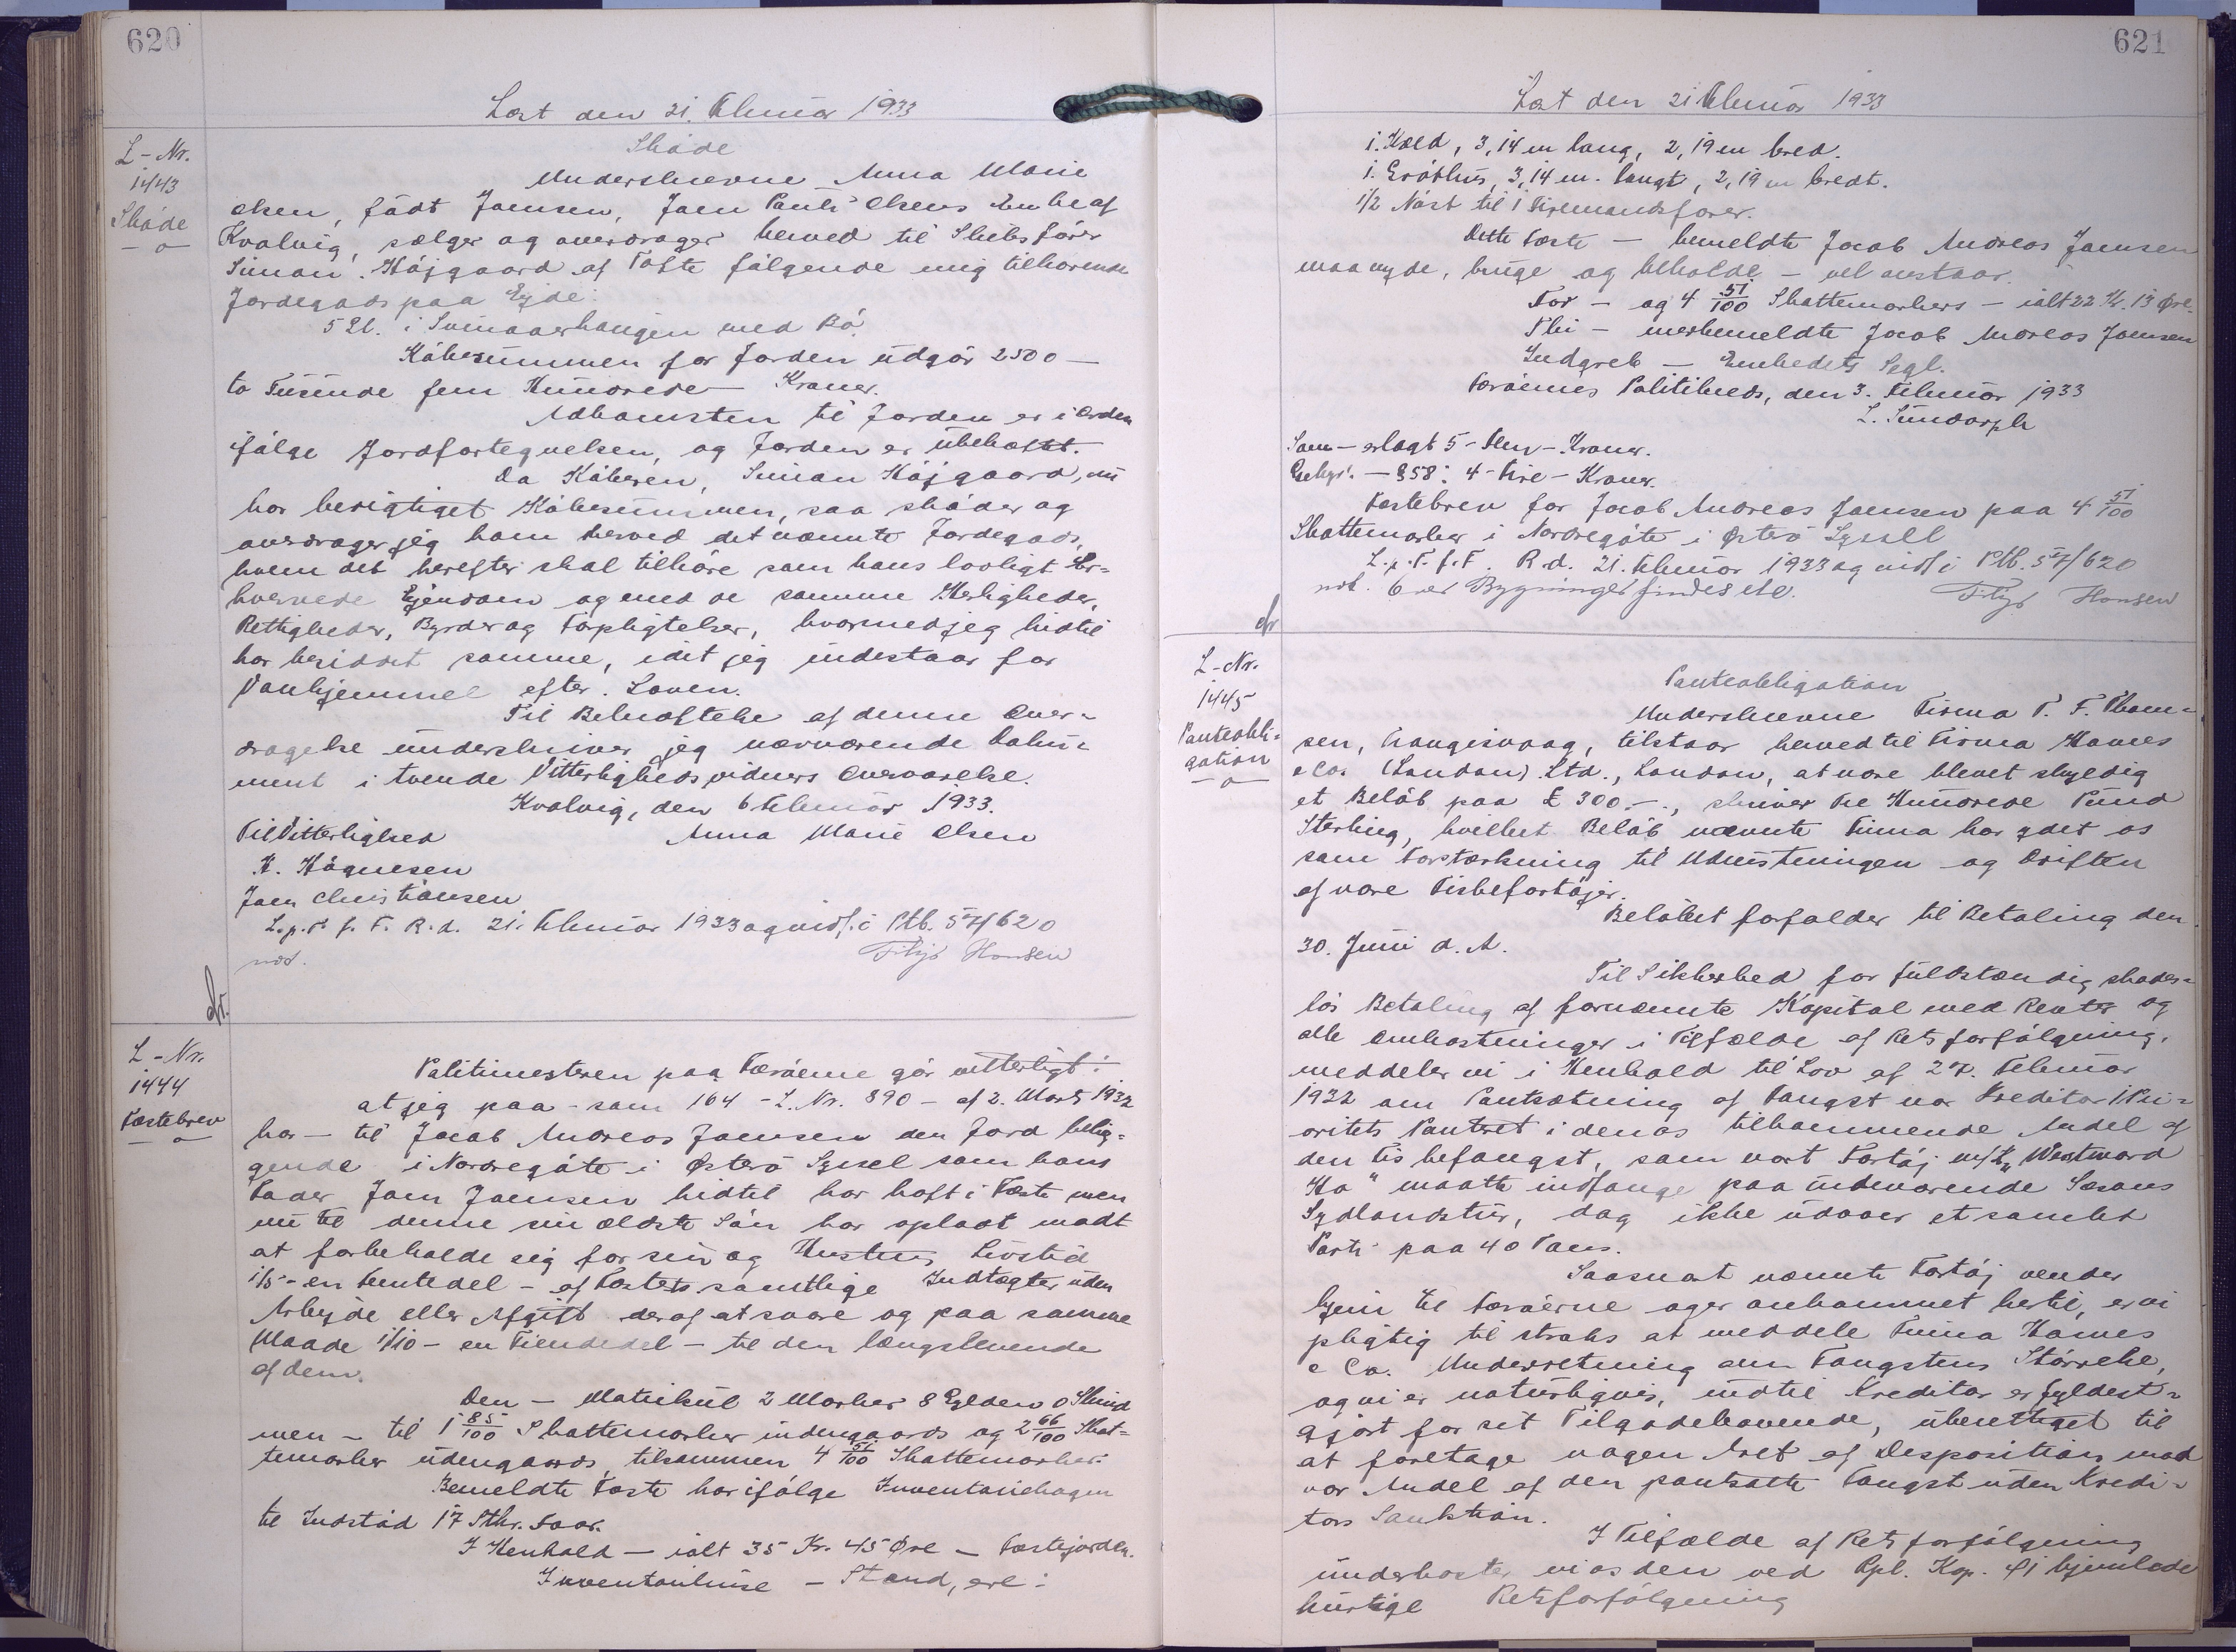 620
Læst den 21. Februar 1933
L-Nr.
1443
Skøde
Skøde
Underskrevne Anna Marie
Olsen, født Joensen, Joen Pauli Olsens Enke af
Kvalvig, sælger og overdrager herved til Skibsfører
Simon Højgaard af Tofte følgende mig tilhørende
Jordegods paa Ejde:
5 Gl. i Svinaarhaugen med Bø.
Købesummen for Jorden udgør 2500 —
to Tusinde fem Hundrede — Kroner.
Adkomsten til Jorden er i Orden
ifølge Jordfortegnelsen, og Jorden er ubehæftet.
Da Køberen, Simon Højgaard, nu
har berigtiget Købesummen, saa skøder og
overdrager jeg ham herved det nævnte Jordegods,
hvem det herefter skal tilhøre som hans lovligt Er-
hvervede Ejendom og med de samme Herligheder,
Rettigheder, Byrder og Forpligtelser, hvormed jeg hidtil
har besiddet samme, idet jeg indestaar for
Vanhjemmel efter Loven.
Til Bekræftelse af denne Over-
dragelse underskriver jeg nærværende Doku-
ment i tvende Vitterlighedsvidners Overværelse.
Kvalvig, den 6 Februar 1933.
Til Vitterlighed Anna Marie Olsen
H. Høgnesen
Joen Christiansen
L.p.T. f. F. R.d. 21. Februar 1933 og indf. i Ptb. 57/620
not. Filip Hansen
L-Nr.
1444
Fæstebrev
Politimesteren paa Færøerne gør vitterligt:
at jeg paa - som 164 - L. Nr. 890 - af 2. Marts 1932
har - til Jacob Andreas Joensen den Jord belig-
gende i Nordregøte i Østerø Syssel som hans
Fader Joen Joensen hidtil har haft i Fæste men
nu til denne sin ældste Søn har opladt modt
at forbeholde sig for sin og Hustrus Livstid
1/5 - en Femtedel - af Fæstets samtlige Indtægter uden
Arbejde eller Afgift deraf at svare og paa samme
Maade 1/10 - en Tiendedel - til den længstlevende
af dem.
Den - Matrikul 2 Marker 8 Gylden 0 Skind
men - til 1 85/100 Skattemarker indengaards og 2 66/100 Skat-
temarker udengaards, tilsammen 4 51/100 Skattemarker.
Bemeldte Fæste har ifølge Inventariebogen
til Indstød 17 Stkr. Faar.
I Henhold - ialt 35 Kr. 45 Øre - Fæstejorden.
Inventarhuse - Stand, ere:
621
Læst den 21 Februar 1933
1. Hæld, 3,14 m lang, 2,19 m bred.
1. Gróthus, 3,14 m. langt, 2,19 m bredt.
1/2 Nóst til 1 Firemandsfarer.
Dette Fæste - bemeldte Jacob Andreas Joensen
maa nyde, bruge og beholde - vel anstaar.
For - og 4 51/100 Skattemarkers - ialt 22 Kr. 13 Øre.
Thi - merbemeldte Jacob Andreas Joensen
Indgreb - Embedets Segl.
Færøernes Politikreds, den 3. Februar 1933
L. Sundorph
Som - erlagt 5 - Fem - Kroner.
Gebyr. - § 58: 4 - Fire - Kroner.
Fæstebrev for Jacob Andreas Joensen paa 4 51/100
Skattemarker i Nordregøte i Østerø Syssel
L.p.T. f.F. R.d. 21. Februar 1933 og indf. i Ptb. 57/620
not. Over Bygninger findes etc. Filip Hansen
L-Nr.
1445
Panteobli-
gation
Panteobligation
Underskrevne Firma T. F. Thom-
sen, Trangisvaag, tilstaar herved til Firma Hawes
& Co. (London) Ltd., London, at være blevet skyldig
et Beløb paa £ 300.-., skriver Tre Hundrede Pund
Sterling, hvilket Beløb nævnte Firma har ydet os
som Forstærkning til Udrustningen og Driften
af vore Fiskefartøjer.
Beløbet forfalder til Betaling den
30. Juni d. A.
Til Sikkerhed for fuldstændig skades-
løs Betaling af fornævnte Kapital med Renter og
alle Omkostninger i Tilfælde af Retsforfølgning,
meddeler vi i Henhold til Lov af 27. Februar
1932 om Pantsætning af Fangst vor Kreditor 1 Pri-
oritets Panteret i den os tilkommende Andel af
den Fiskefangst, som vort Fartøj m/k „Westward
Ho" maatte indfange paa indeværende Sæsons
Sydlandstur, dog ikke udover et samlet
Parti paa 40 Tons.
Saasnart nævnte Fartøj vender
hjem til Færøerne og er ankommet hertil, er vi
pligtig til straks at meddele Firma Hawes
& Co. Underretning om Fangstens Størrelse,
og vi er naturligvis, indtil Kreditor er fyldest-
gjort for sit Tilgodehavende, uberettiget til
at foretage nogen Art af Desposition mod
vor Andel af den pantsatte Fangst uden Kredi-
tors Sanktion.
I Tilfælde af Retsforfølgning
underkaster vi os den ved Rpl. Kap. 41 hjemlede
hurtige Retsforfølgning